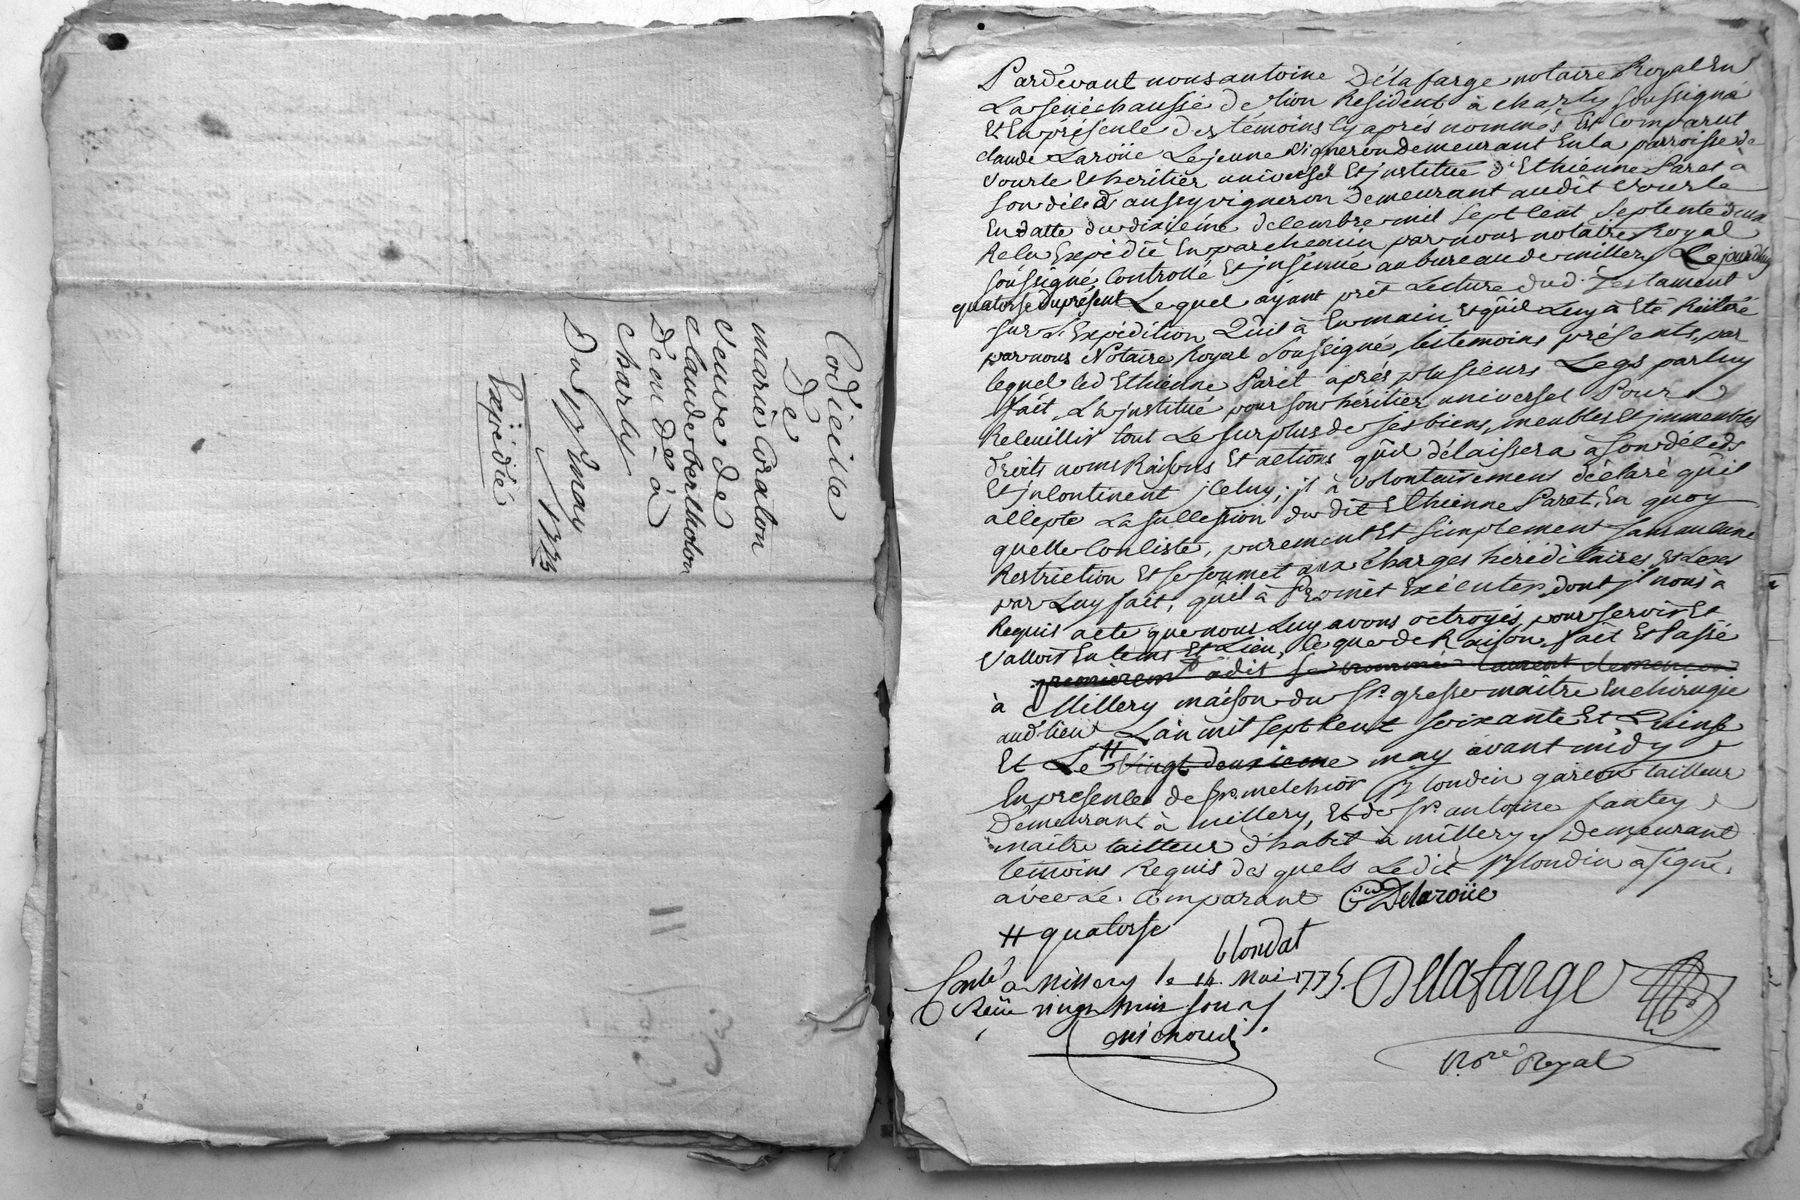 Codicille
De
marie Coralon
veuve de
claude berthołon
Demeurt à
charly
Du 13 may 1775
Expédié
Pardevant nous antoine Délafarge notaire Royal En
La sénéchaussée de lion Résident à charly soussigné
Et En présence des témoins cy après nommés Est Comparut
claude Laroüe Le jeune vigneron Demeurant En la parroisse de
vourle Et héritier universel Et institué d'Ethienne Paret à
son décéd aussy vigneron Demeurant audit vourle
En datte du dixiéme décembre mil sept Cent septente deux
Relu Expédié En parchemin par nous notaire Royal
soussigné, Controllé Et insinué au bureau de millery Le jourdhuy
quatorse du présent Lequel ayant prêt Lecture dud. Testament
sur L'Expédition Quil à En main Et quil Luy à Eté Réitéré
par nous Notaire Royal soussigné, les témoins présents, par
lequel led Ethienne Paret après plusieurs Legs par luy
fait L'a institué pour son héritier universel Pour
Recuillir tout Le surplus de ses biens, meubles Et immeubles
droits noms Raisons Et actions qûil délaissera à son décéds
Et incontinent iceluy, il à volontairement déclaré qûil
accepte La succession du dit Ethienne Paret, En quoy
quelle Conciste, purement Et simplement sans aucune
Restriction Et se soumet aux charges héréditaires, Et Legs
par Luy fait, qûil à Promêt Exécuter, dont il nous à
Requis acte que nous Luy avons octroyés, pour servir Et
valloir En tems Et Lieu, Ce que de Raison, fait Et Passé
à Millery maison du Sr. gresse maître En chirugie
aud. lieu L'an mil sept Cent soixante Et Quinse
Et Le # vingt deuxieme may avant midy
En présence de Sr. melchior Blondin garçon tailleur
Demeurant à millery, Et de Sr antoine fantey
maître tailleur d'habit à millery y Demeurant
témoins Requis des quels Le dit Blondin à signé
avec Le Comparant Cde Delaroüe
# quatorse
blondat
Conté à Millery le 14 Mai 1775
Reçu vingt huit sous
michoud
Delafarge
Nore Royal